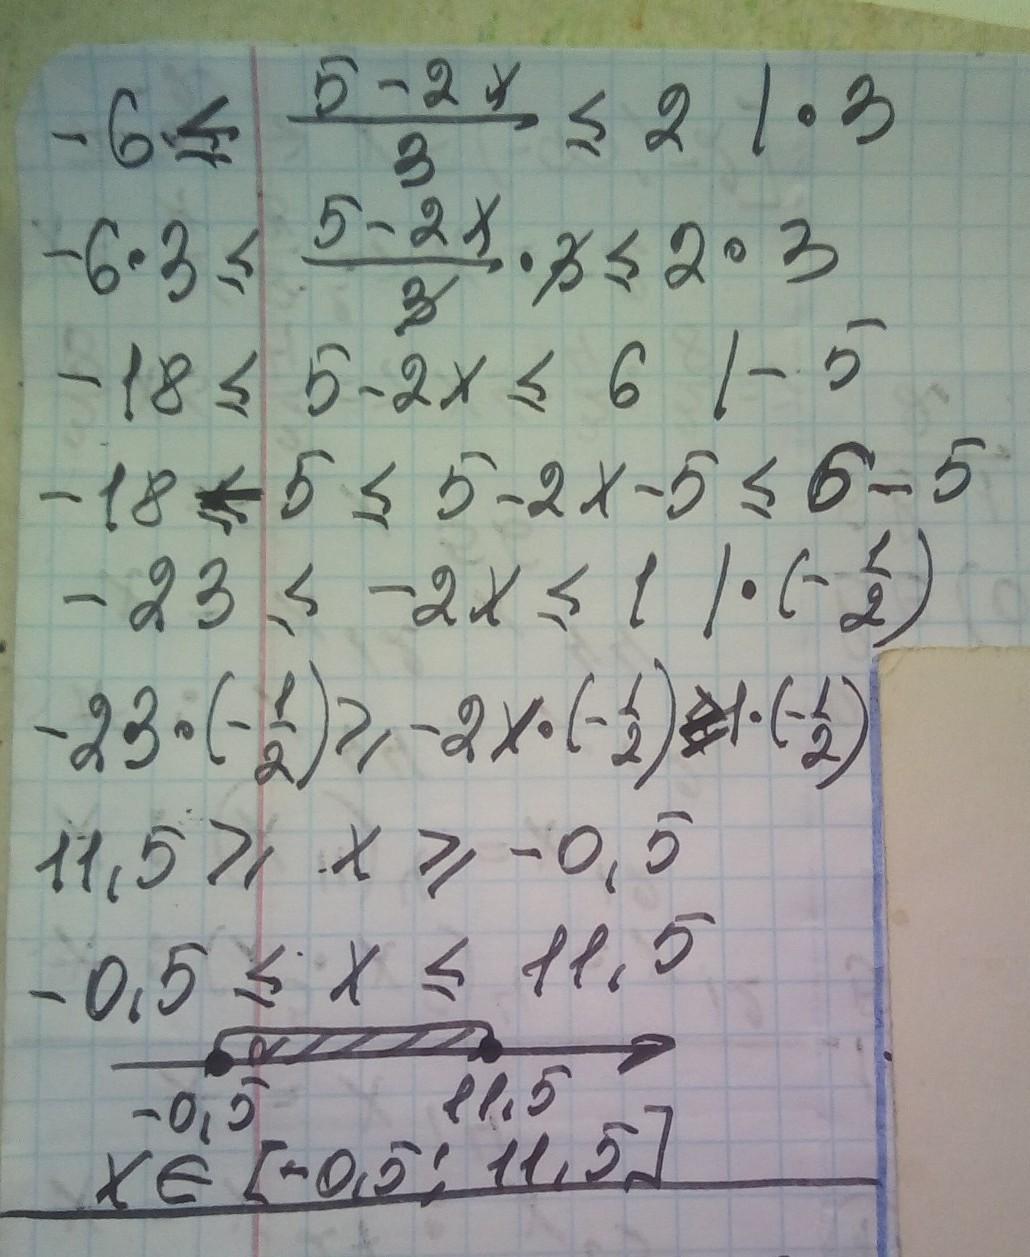 -6 ≤ (5-2x)/3 ≤ 2 | · 3
-6·3 ≤ (5-2x)/3 · 3 ≤ 2 · 3
-18 ≤ 5-2x ≤ 6 | - 5
-18 - 5 ≤ 5-2x-5 ≤ 6-5
-23 ≤ -2x ≤ 1 | · (-1/2)
-23·(-1/2) ≥ -2x·(-1/2) ≥ 1·(-1/2)
11,5 ≥ x ≥ -0,5
-0,5 ≤ x ≤ 11,5
-0,5 11,5
x ∈ [-0,5; 11,5]